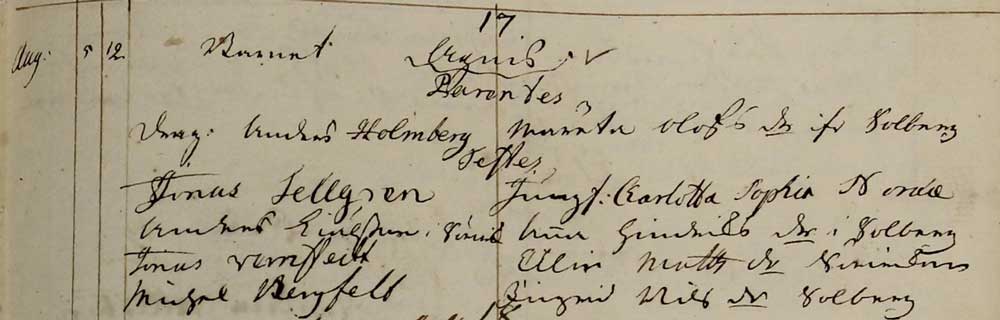 17
Aug: 5 12 Barnet Agnis
Parentes
Drag: Anders Holmberg Mareta Olofs dr ifr Solberg
Testes
Jonas Sellgren Jungf: Carlotta Sophia
Anders i Anna Hindricks dr i Solberg
Jonas Elin Matts dr
Michel Bergfelt Lingrid Nils dr Solberg
18